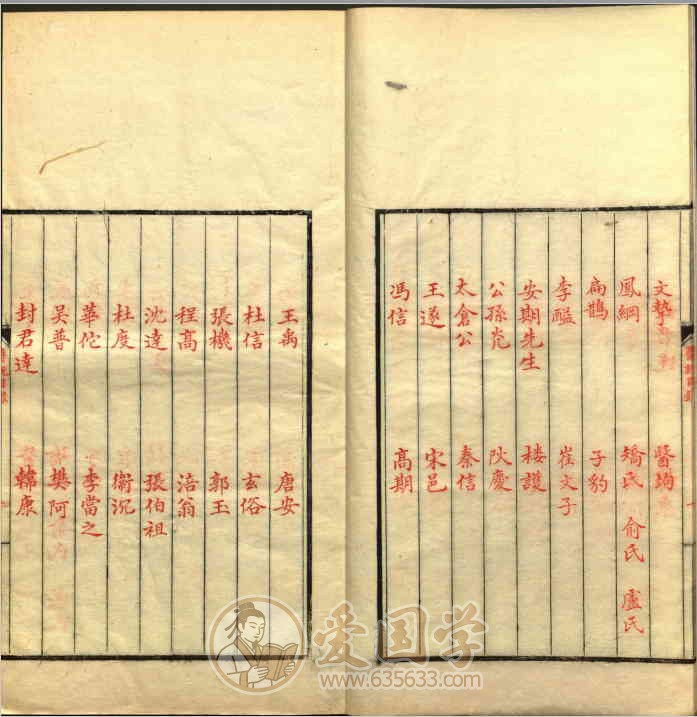 文摯 醫竘
鳳綱 矯氏 俞氏 盧氏
扁鵲 子豹
李醯 崔文子
安期先生 樓護
公孫光 陽慶
太倉公 秦信
王遂 宋邑
馮信 高期
王禹 唐安
杜信 玄俗
張機 郭玉
程高 涪翁
沈建 張伯祖
杜度 衛沉
華佗 李當之
吳普 樊阿
封君達 韓康
爱国学
www.635633.com